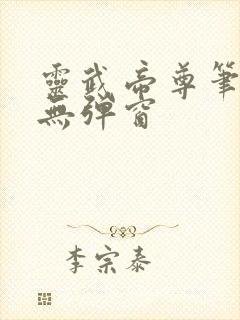 靈武帝尊筆
無彈窗
李宗泰